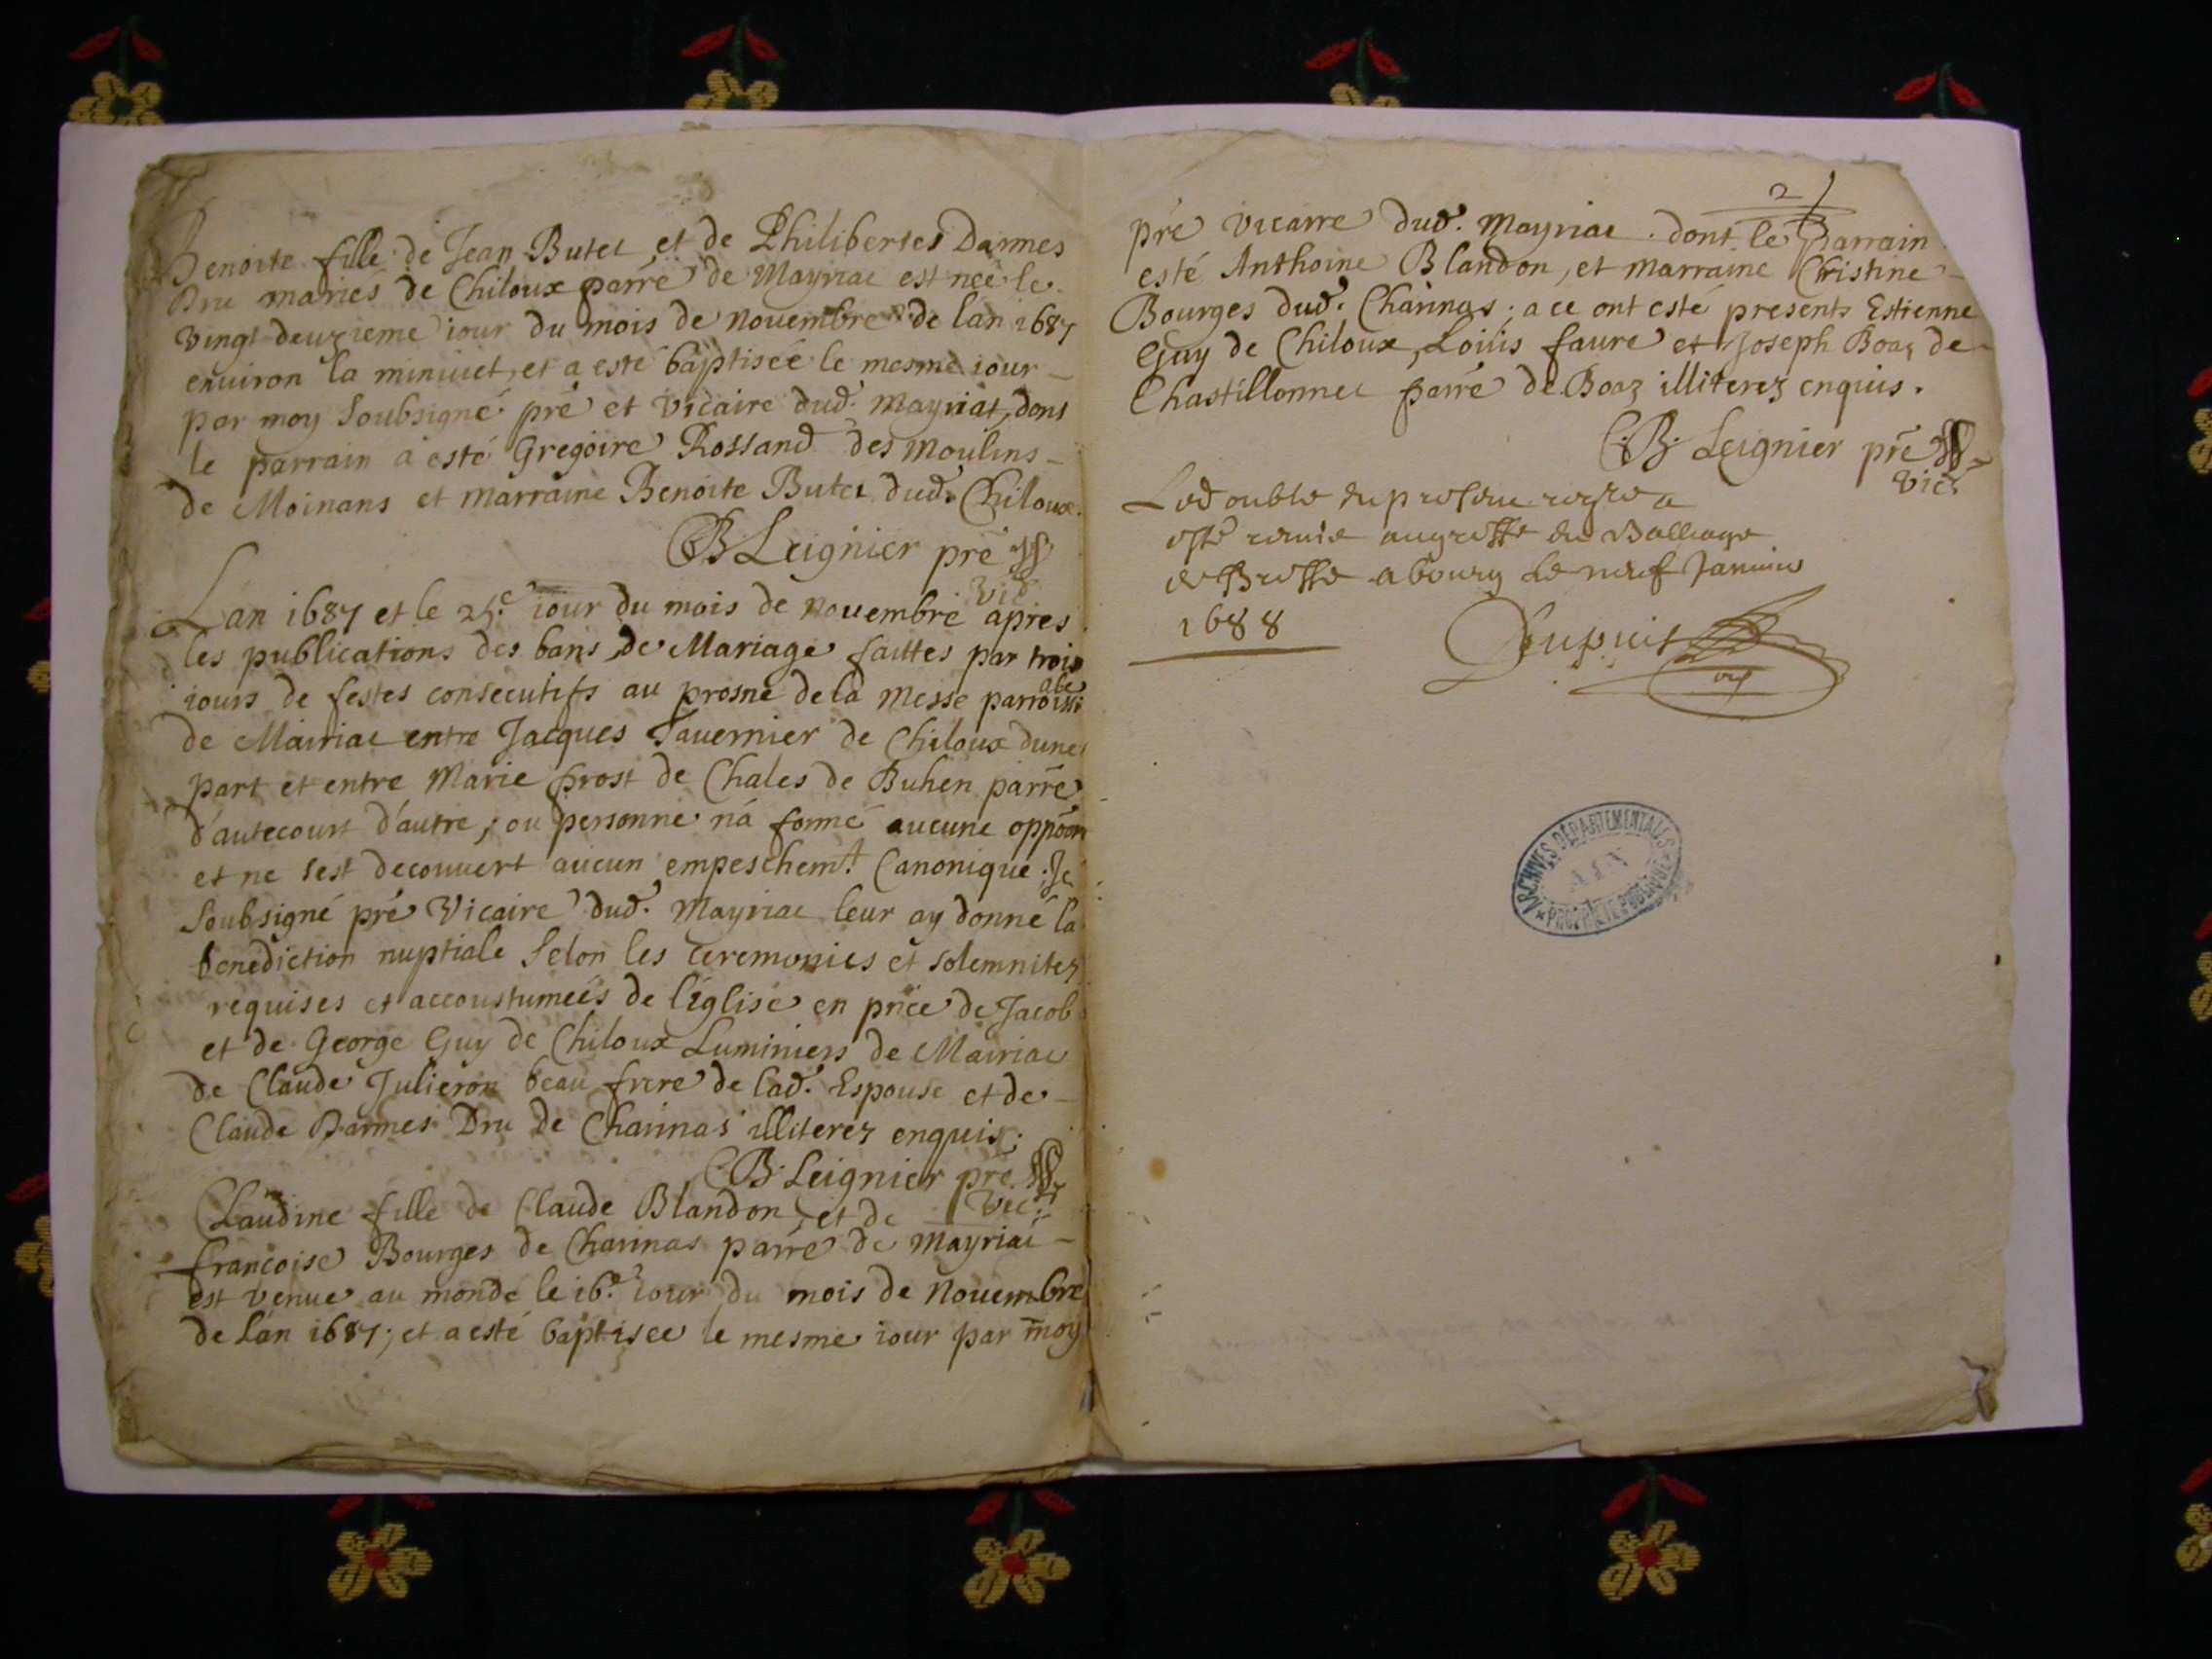 Benoite fille de Jean Butet et de Philibertes Darmes
Dru mariés de Chiloux parre de Mayriac est neé le
vingt deuzieme iour du mois de Nouembre de lan 1687
enuiron la minuiet, et a esté baptisée le mesme iour
par moy Soubsigné pre et vicaire dud. Mayriat, dont
le parrain a esté Gregoire Rossand des Moulins
de Moinans et marraine Benoite Butet dud. Chiloux.
B Leignier pre
Vic
Lan 1687 et le 25.e iour du mois de Nouembre apres
les publications des bans de Mariage faittes par trois
iours de festes consecutifs au prosne de la Messe parroissiale
de Mairiac entre Jacques Tauernier de Chiloux dune
part et entre Marie Prost de Chales de Buhen parre
d'autecourt d'autre, ou personne n'á formé aucune oppõon
et ne sest decouuert aucun empeschem.t Canonique. Je
Soubsigné pre Vicaire dud. Mayriac leur ay donné la
benediction nuptiale Selon les ceremonies et solemnitez
requises et accoustumeés de l'église en pñce de Jacob
et de George Guy de Chiloux Luminiers de Mairiac
de Claude Julieron beau frere de lad. Espouse et de
Claude Darmes Dru de Charinas illiterez enquis.
B. Leignier pre
Vic.
Claudine fille de Claude Blandon, et de
francoise Bourges de Charinas parre de Mayriac
est venue au monde le 16.e iour du mois de Nouembre
de lán 1687; et a esté baptisee le mesme iour par moy
2
pre vicaire dud. Mayriac. dont le Parrain
esté Anthoine Blandon, et marraine Christine
Bourges dud. Charinas; a ce ont esté presents Estienne
Guy de Chiloux, Loüis faure et Joseph Boaz de
Chastillonnet parre de Boaz illiterez enquis.
C. B. Leignier pre
Vic.
Le double du presant regre a
esté remis au greffe du Balliage
de Bresse a bourg le neuf Januier
1688
Dupuis
ARCHIVES DÉPARTEMENTALES
AIN
* PROPRIÉTÉ PUBLIQUE *